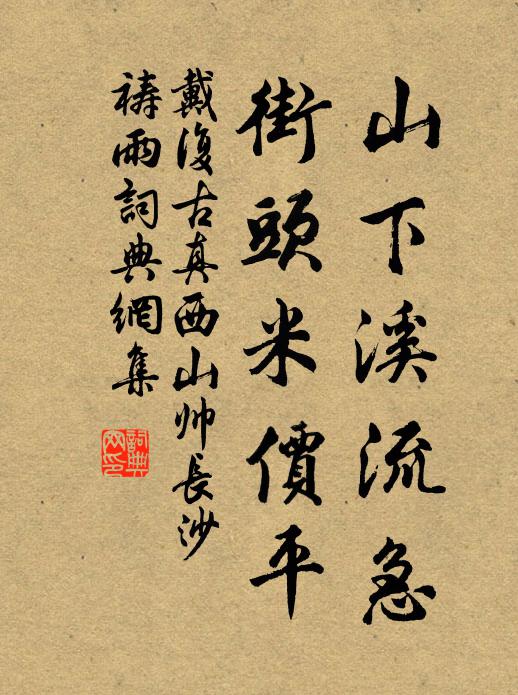 山下溪流急
街頭米價平
戴復古真西山帅長沙
祷雨詞典網集
詞典
网印